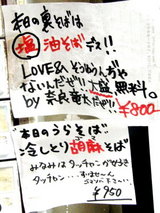 本日の裏そばは
塩 油そばデス!!
LOVE&
ないんだぜ!!大盛無料。
by 奈良竜太だゾ!!
¥800
本日のうらそば
冷しとり胡麻そば
みなみはタッチャンが好き
タッチャン...
¥950